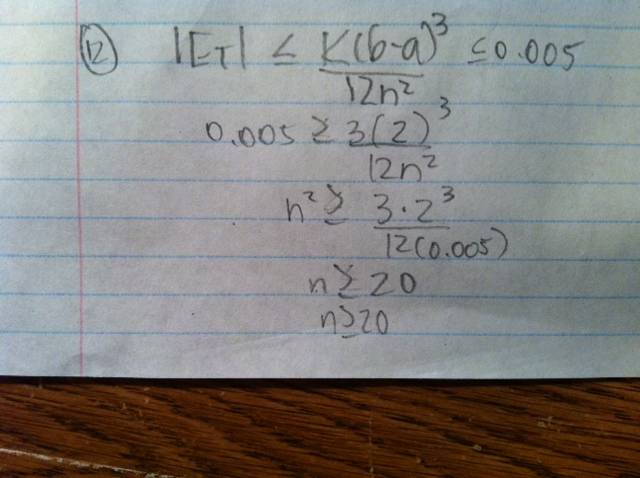 (12) |E_T| ≤ K(b-a)³/12n² ≤ 0.005
0.005 ≥ 3(2)³/12n²
n² ≥ 3·2³/12(0.005)
n ≥ 20
n ≥ 20